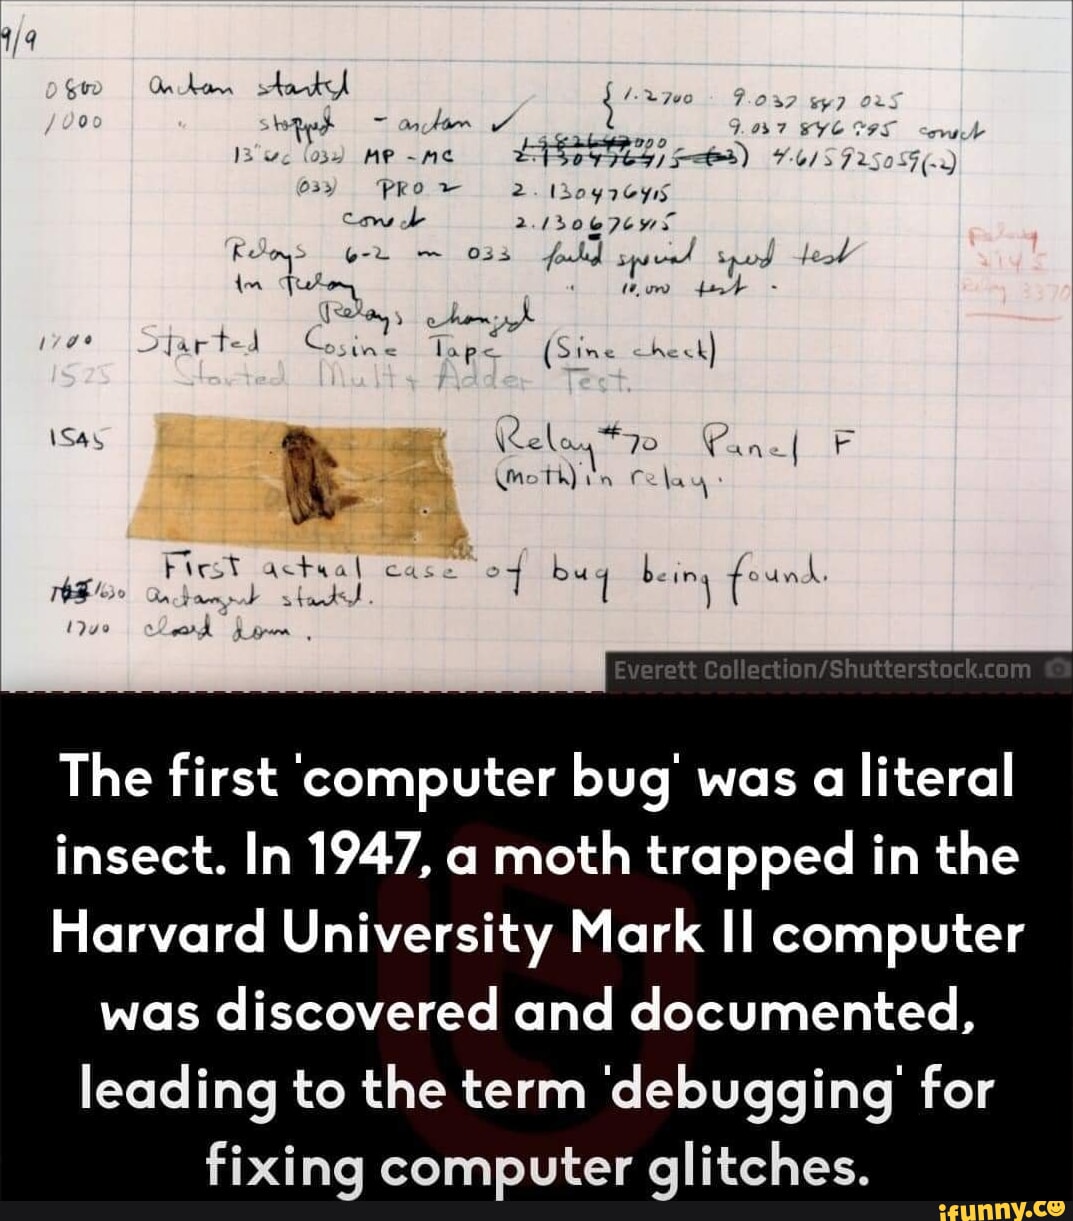 9/9
0800 Antan started
1000 " stopped - antan ✓ { 1.2700 9.037 847 025
9.037 846 995 conect
13"uc (032) MP - MC 2.130476415 (-3) 4.615925059(-2)
(033) PRO 2 2.130476415
conect 2.130676415
Relays 6-2 in 033 failed special speed test
in relay " 10,000 test .
Relays changed
Relay
2145
Relay 3370
1700 Started Cosine Tape (Sine check)
1525 Started Mult + Adder Test.
1545 Relay #70 Panel F
(moth) in relay.
First actual case of bug being found.
1630 antangent started.
1700 closed down .
Everett Collection/Shutterstock.com
The first 'computer bug' was a literal
insect. In 1947, a moth trapped in the
Harvard University Mark II computer
was discovered and documented,
leading to the term 'debugging' for
fixing computer glitches.
ifunny.co